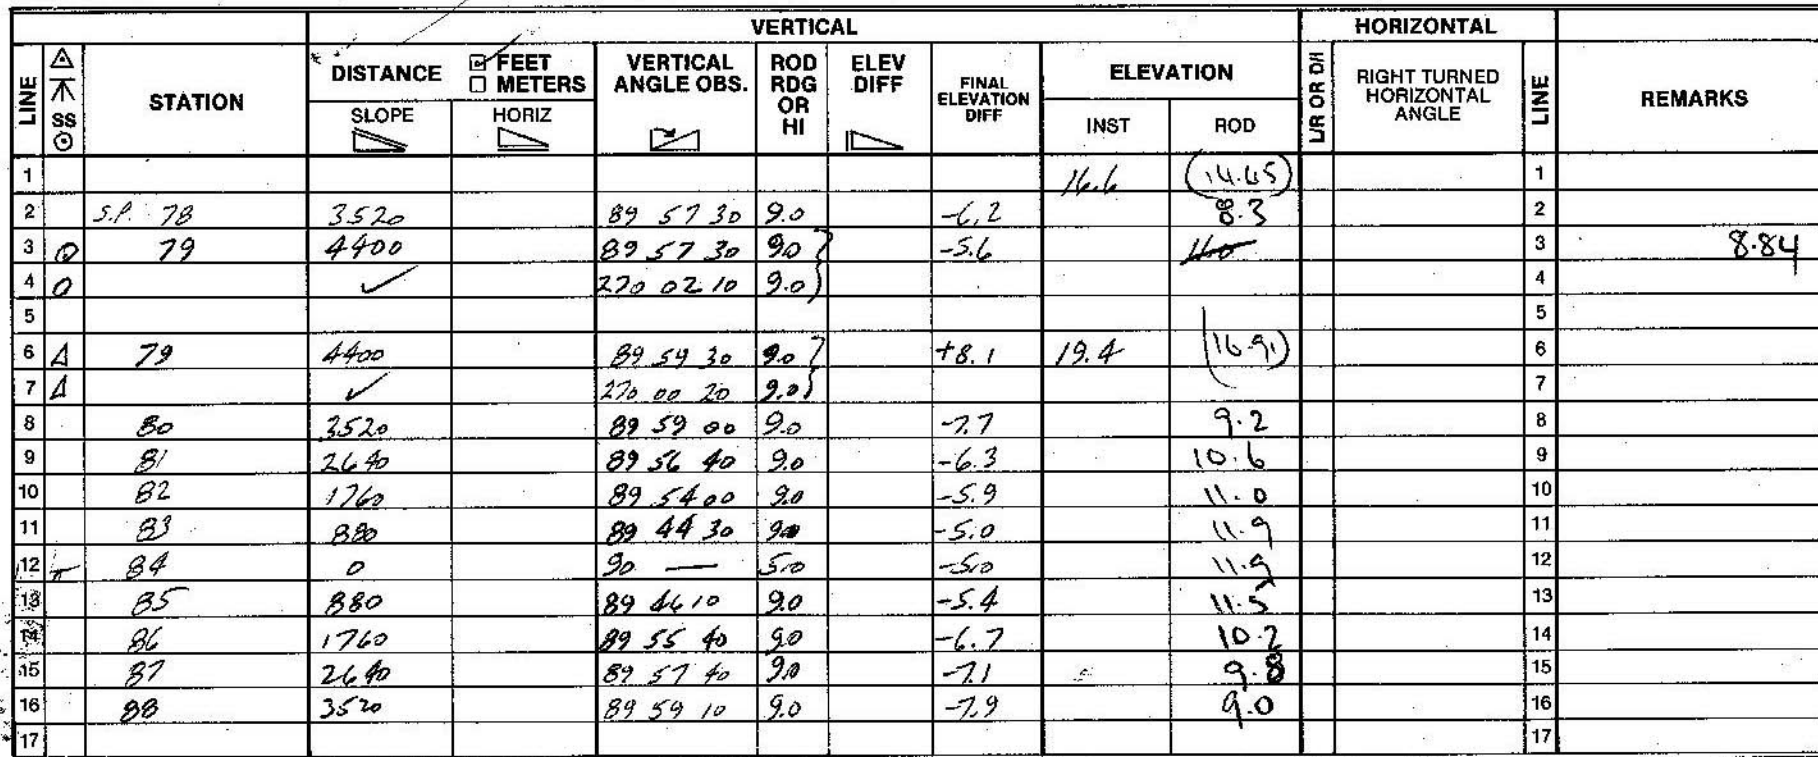 VERTICAL HORIZONTAL
LINE SS STATION DISTANCE FEET METERS VERTICAL ANGLE OBS. ROD RDG OR HI ELEV DIFF FINAL ELEVATION DIFF ELEVATION L/R OR D/I RIGHT TURNED HORIZONTAL ANGLE LINE REMARKS
SLOPE HORIZ INST ROD
1 16.6 (14.65) 1
2 S.P. 78 3520 89 57 30 9.0 -6.2 8.3 2
3 79 4400 89 57 30 9.0 -5.6 3 8.84
4 ✓ 270 02 10 9.0 4
5 5
6 Δ 79 4400 89 59 30 9.0 +8.1 19.4 (16.91) 6
7 Δ ✓ 270 00 20 9.0 7
8 80 3520 89 59 00 9.0 -7.7 9.2 8
9 81 2640 89 56 40 9.0 -6.3 10.6 9
10 82 1760 89 54 00 9.0 -5.9 11.0 10
11 83 880 89 44 30 9.0 -5.0 11.9 11
12 84 0 90 — 5.0 -5.0 11.9 12
13 85 880 89 46 10 9.0 -5.4 11.5 13
14 86 1760 89 55 40 9.0 -6.7 10.2 14
15 87 2640 89 57 40 9.0 -7.1 9.8 15
16 88 3520 89 59 10 9.0 -7.9 9.0 16
17 17